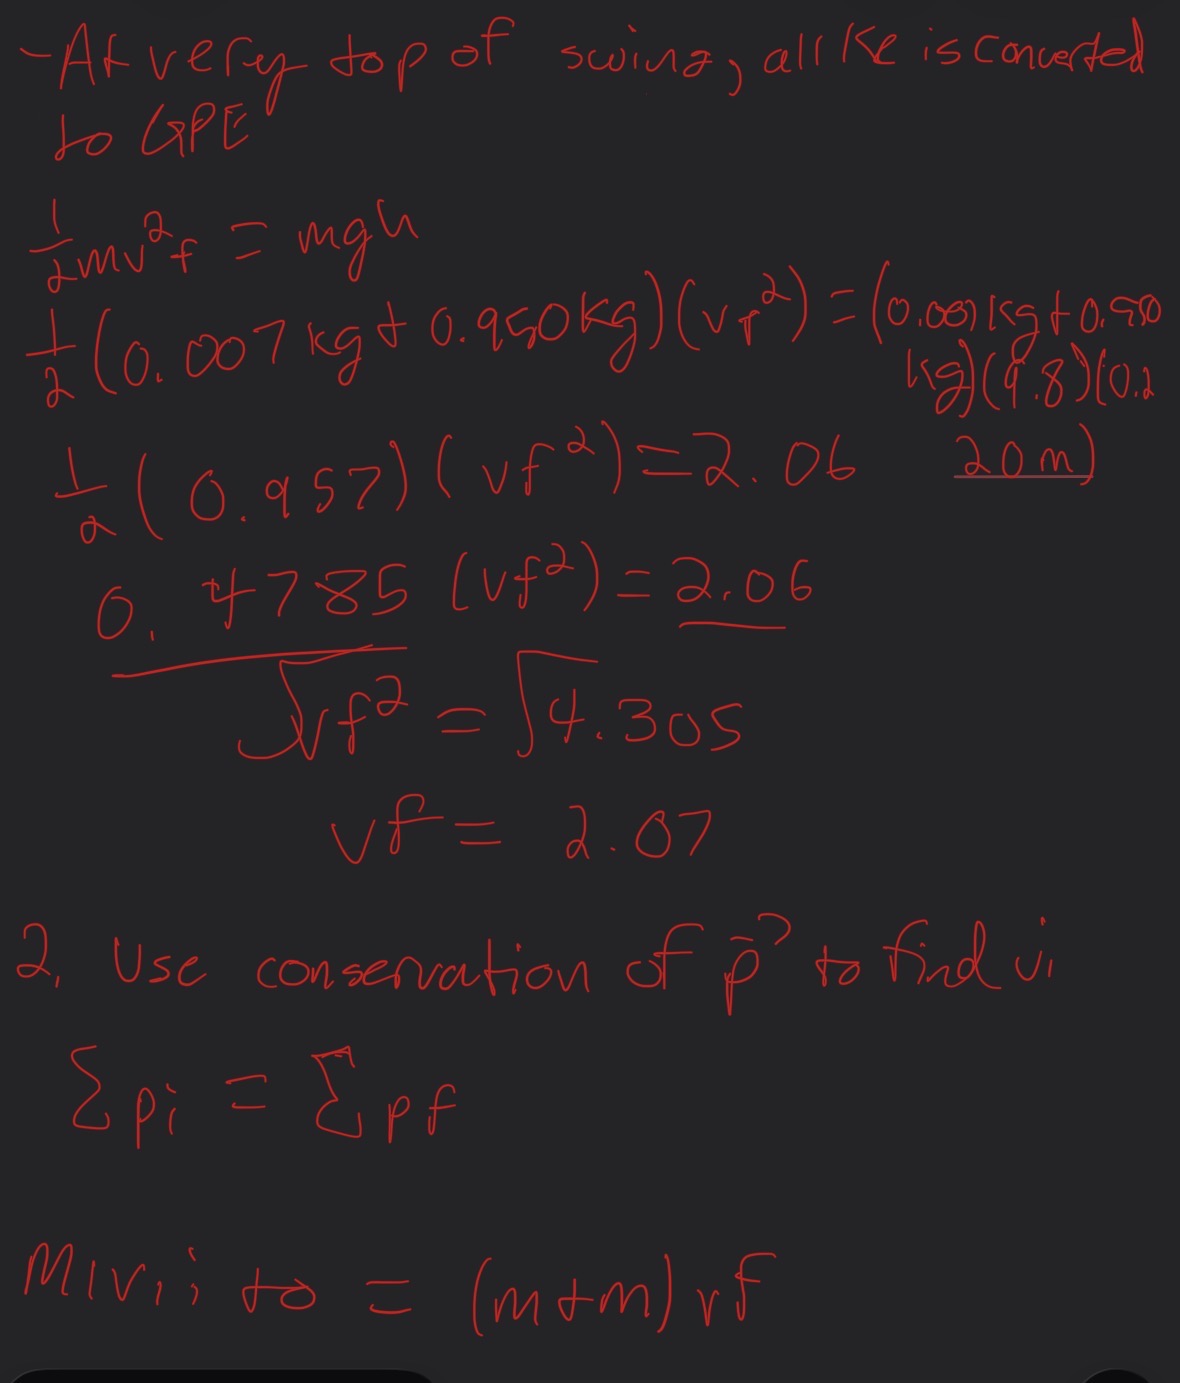 - At very top of swing, all KE is converted
to GPE
1/2 mv²f = mgh
1/2 (0.007 kg + 0.950 kg) (vf²) = (0.007 kg + 0.950
kg) (9.8) (0.2
1/2 (0.957) (vf²) = 2.06 20 m)
0.4785 (vf²) = 2.06
√vf² = √4.305
vf = 2.07
2. Use conservation of p⃗ to find vi
Σpi = Σpf
M1v1i + 0 = (m+m) vf